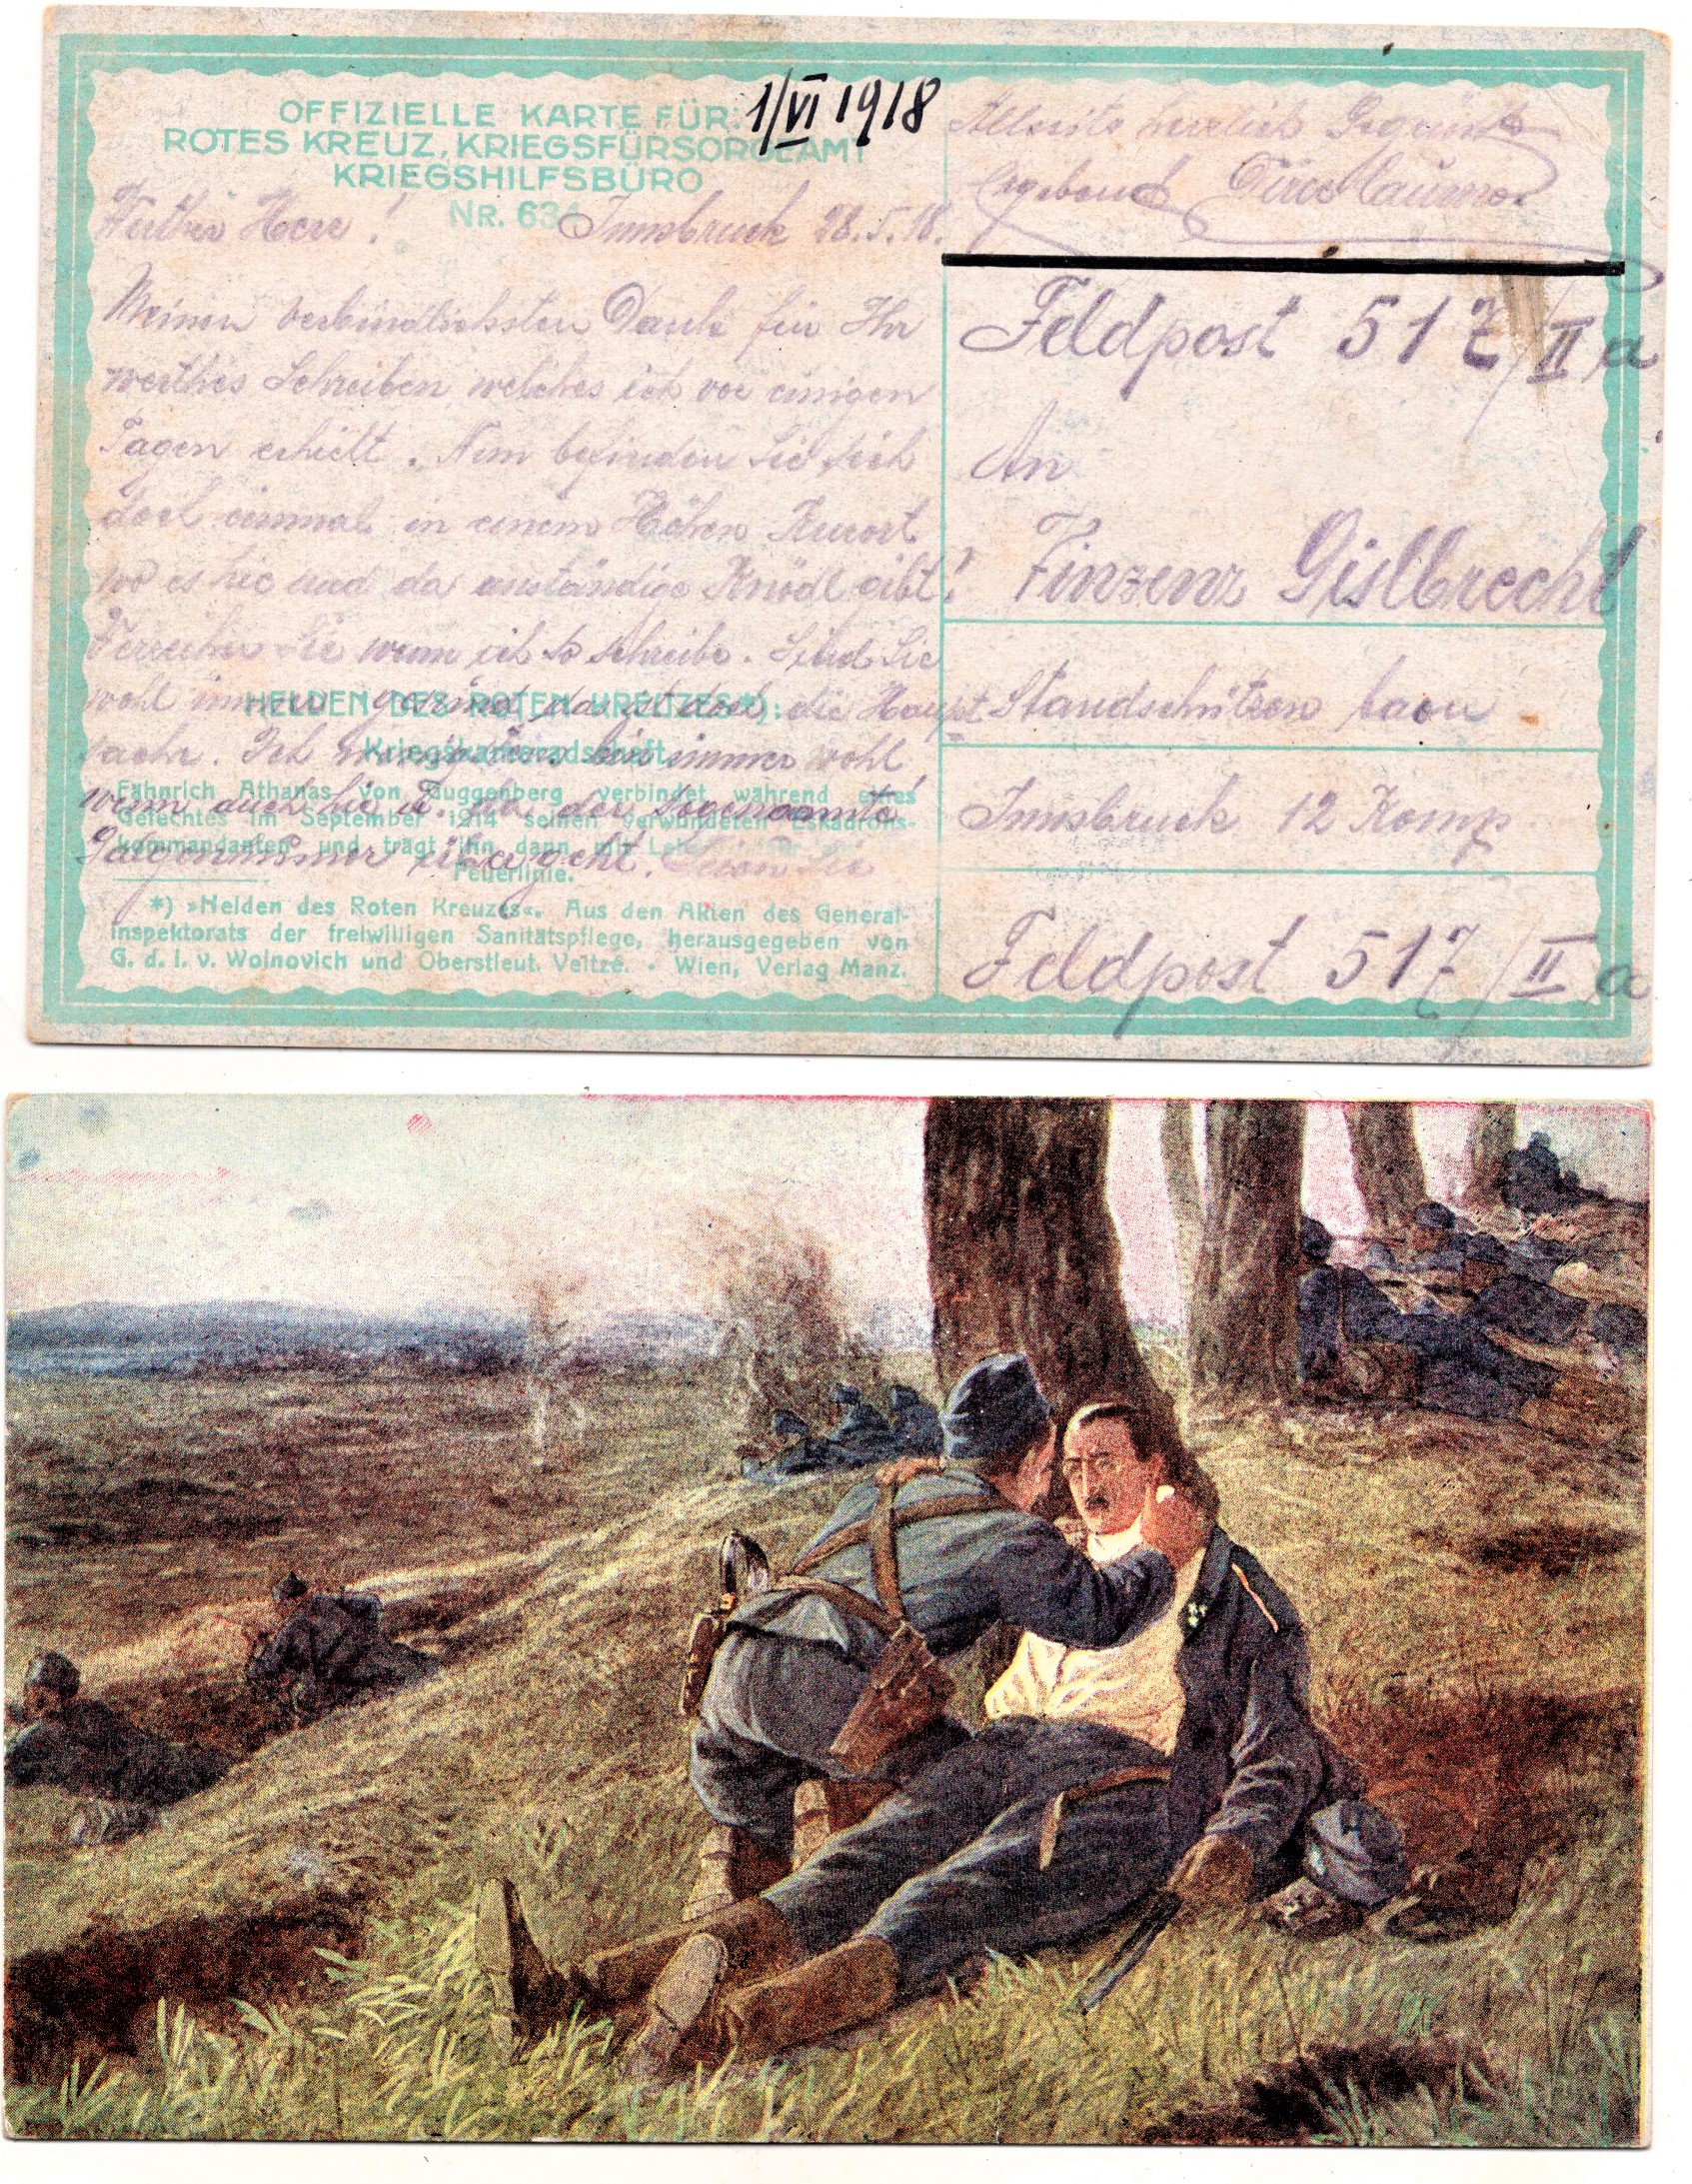 OFFIZIELLE KARTE FÜR:
ROTES KREUZ, KRIEGSFÜRSORGEAMT
KRIEGSHILFSBÜRO
NR. 634
1/VI 1918
Werther Herr! Innsbruck 28.5.18.
Meinen verbindlichsten Dank für Ihr
werthes Schreiben welches ich vor einigen
Tagen erhielt. Nun befinden Sie sich
doch einmal in einem Höhen Kurort
wo es hie und da anständige Knödl gibt!
Verzeihen Sie wenn ich so schreibe. Sind Sie
wohl immer gesund das ist doch die Haupt
sache. Ich bin immer wohl
wenn auch hie u. da der sogenannte
Galgenhumor übergeht. Seien Sie
HELDEN DES ROTEN KREUZES*):
Kriegskameradschaft.
Fähnrich Athanas von Guggenberg verbindet während eines
Gefechtes im September 1914 seinen verwundeten Eskadrons-
kommandanten und trägt ihn dann mit
Feuerlinie.
*) »Helden des Roten Kreuzes«. Aus den Akten des General-
inspektorats der freiwilligen Sanitätspflege, herausgegeben von
G. d. I. v. Woinovich und Oberstleut. Veltzé. - Wien, Verlag Manz.
Allseits herzlich Gegrüßt
Ergebend
Feldpost 517/II a
An
Vinzenz Gislbrecht
Standschützen baon
Innsbruck 12 Komp
Feldpost 517/II a